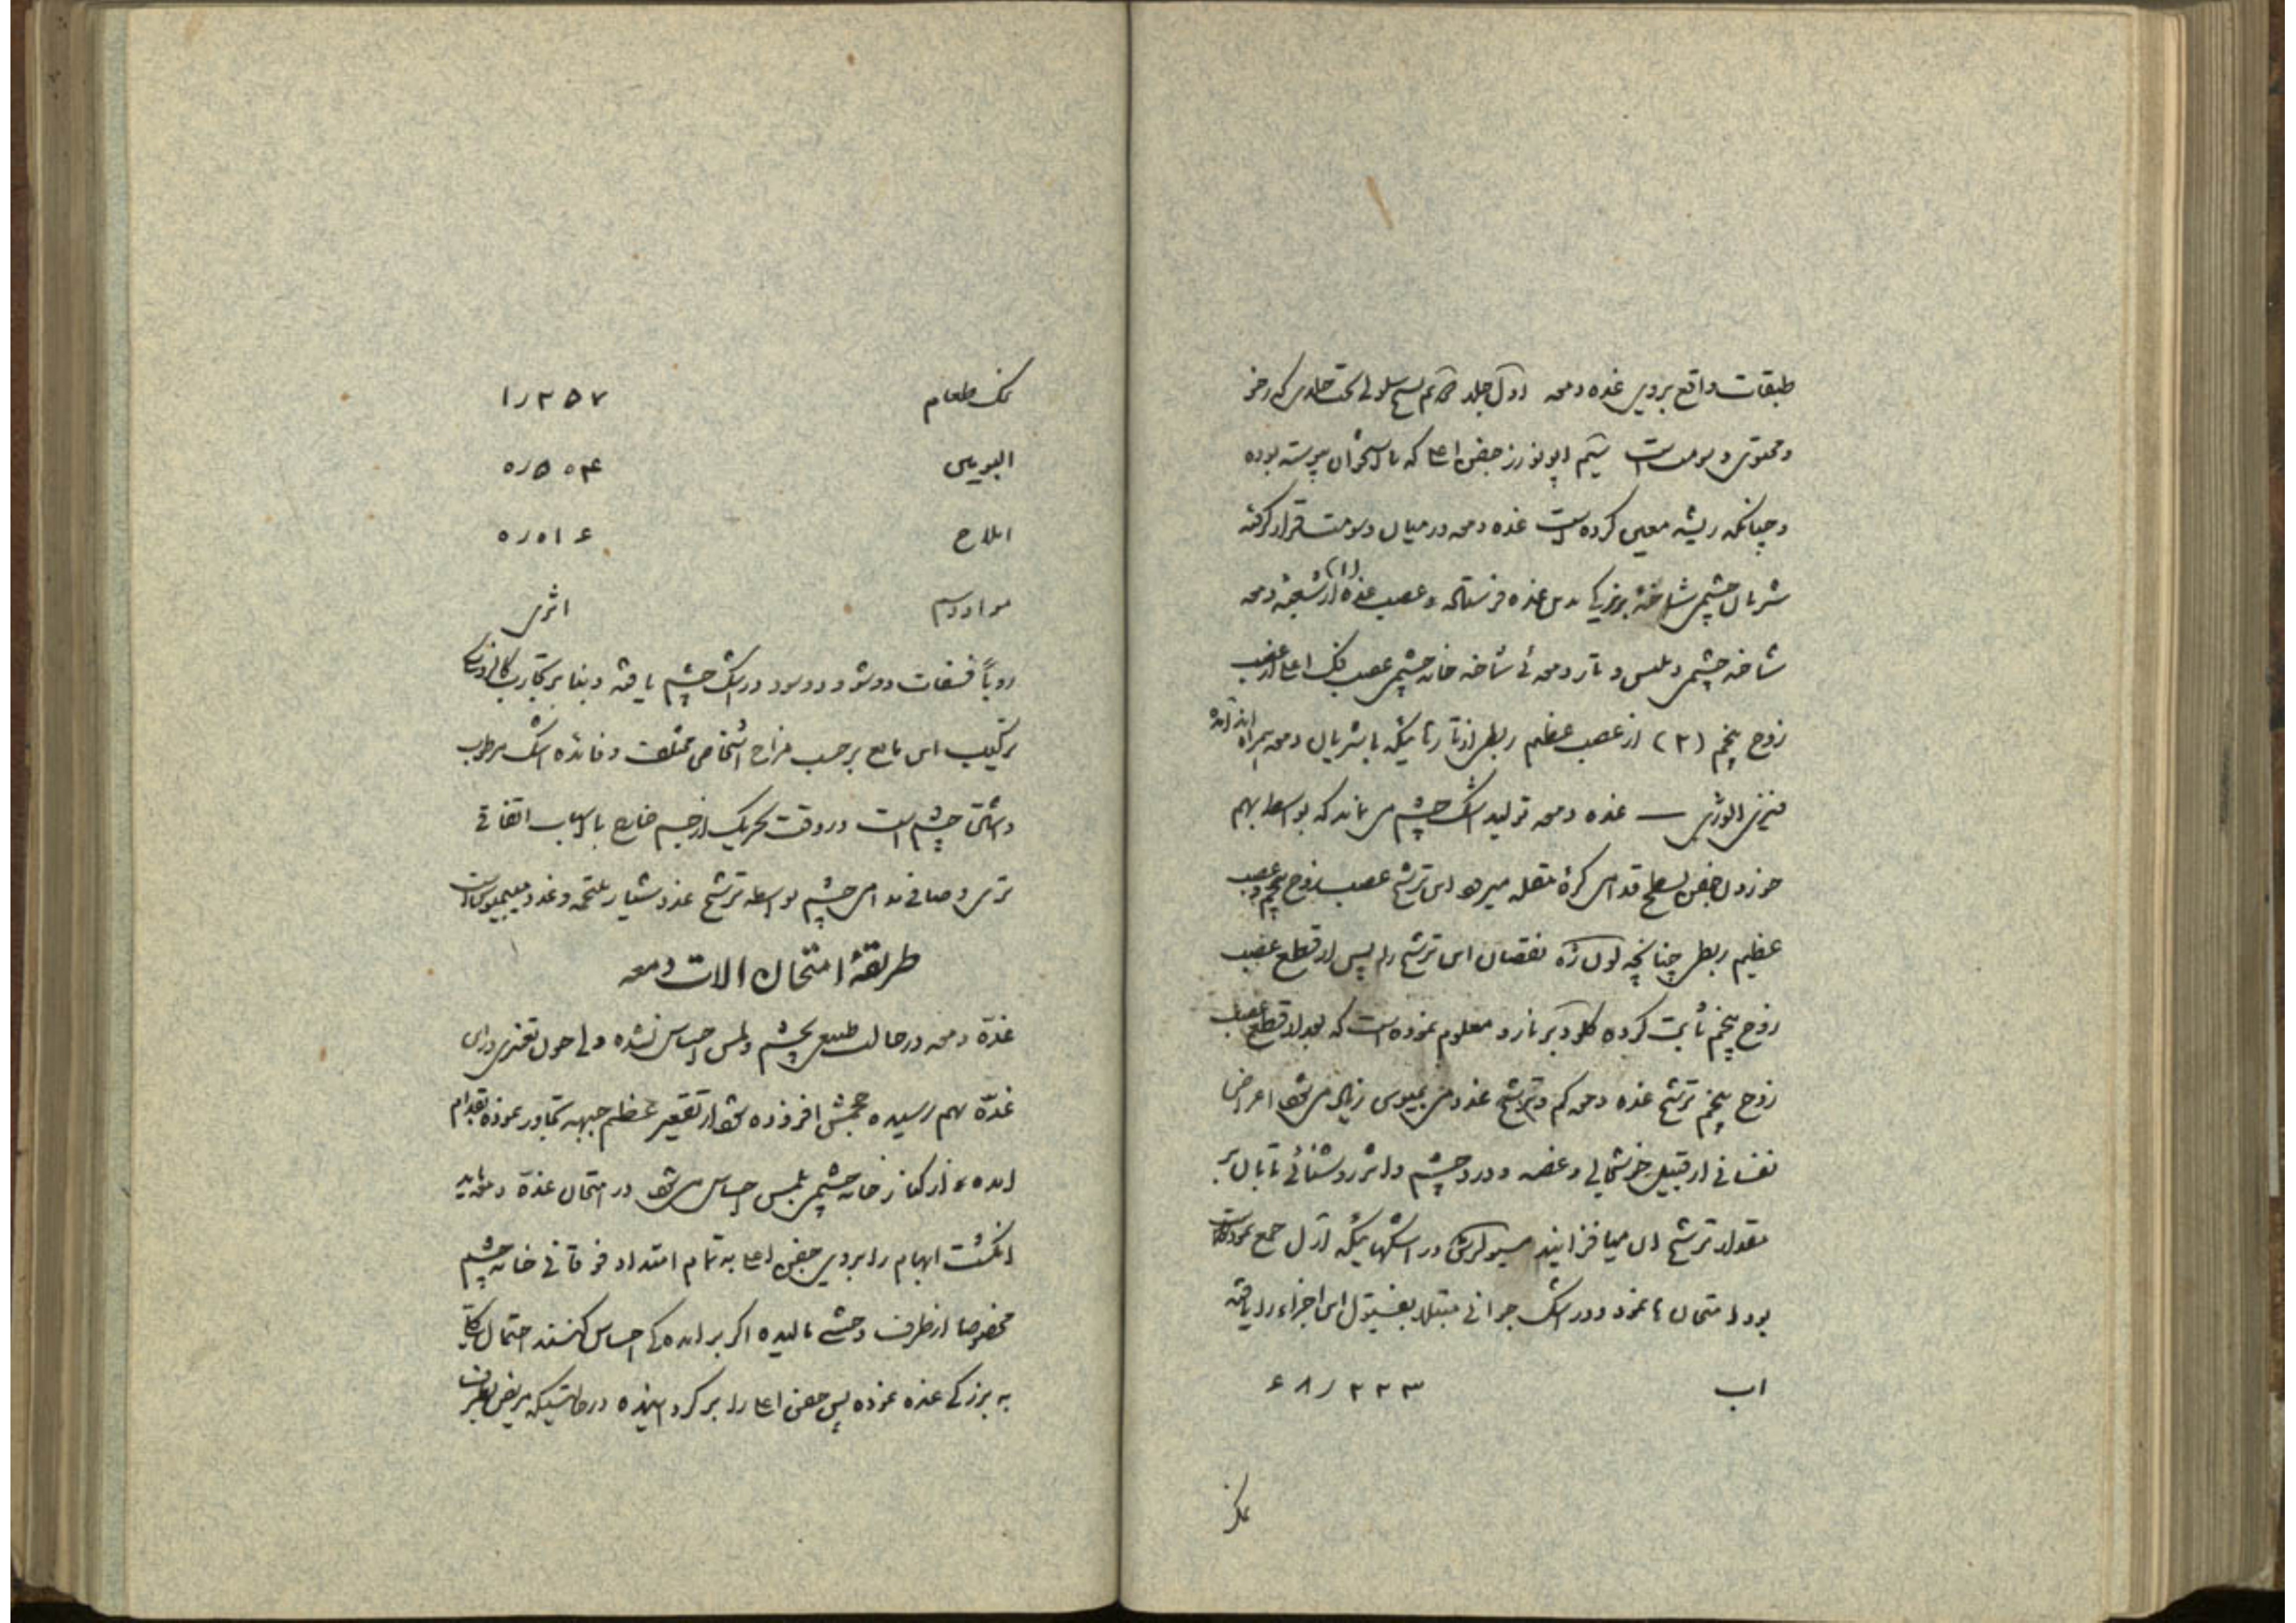 طبقات واقع بروی غده دمعه اول جلد دوم نسج سلولی تحت جلدی که رخو
و محتوی دسومت است سیم اپونورز جفن اعلا که با استخوان پیوسته بوده
و چنانکه ریشه معین کرده است غده دمعه در میان دسومت قرار گرفته
شریان چشمی شاخهٔ بزرگی بدین غده فرستاده و عصب غده (۱) از شعبهٔ دمعه
شاخه چشمی ویلیس و تار دمعه‌ئی شاخه خانه چشمی عصب فک اعلا از عصب
زوج پنجم (۲) از عصب عظیم ربطی از تارتائیکه با شریان دمعه همراه اند آمده
فیزیالوژی — غده دمعه تولید اشک چشم می نماید که بواسطه بهم
خوردن جفن بسطح قدامی کرهٔ مقله میرود این ترشح عصب زوج پنجم و عصب
عظیم ربطی چنانچه نقصان این ترشح را پس از قطع عصب
زوج پنجم ثابت کرده کلودبرنارد معلوم نموده است که بعد از قطع عصب
زوج پنجم ترشح غده دمعه کم و ترشح غدد میبمیوس زیاد می شود اعراض
نفسانی از قبیل خوشحالی و غصه و درد چشم و اثر روشنائی تابان بر
مقدار ترشح آن میافزایند مسیو لرش در اشکهائیکه آرل جمع نموده
بود امتحان ها نمود و در اشک جوانی مبتلا بفیستول این اجزاء را یافته
اب ۹۸٫۲۲۳
نمک
نمک طعام ۱٫۲۵۷
البومین ۰٫۵۰۴
املاح ۰٫۰۱۶
مواد دسم اثری
روبأ فسفات دوشو و دوسود در اشک چشم یافته و بنا بر تجارب
ترکیب این مایع بر حسب مزاج اشخاص مختلف و فائده اشک مرطوب
داشتن چشم است در وقت تحریک از جسم خارج یا اسباب اتفاقی
تری و صافی مدامی چشم بواسطه ترشح غدد شیار ملتحمه و غدد میبمیوس است
طریقهٔ امتحان الات دمعه
غدّه دمعه در حالت طبیعی بچشم و لمس احساس نشده ولی چون تغییری در این
غدّه بهم رسیده حجمش افزوده شود از تقعیر عظم جبهه تجاوز نموده بقدام
امده و از کنار خانه چشمی بلمس احساس می شود در امتحان غدّه دمعه باید
انگشت ابهام را بروی جفن اعلا به تمام امتداد فوقانی خانه چشم
مخصوصا از طرف وحشی مالیده اگر بر امده کی احساس کنند احتمال
به بزرکی غده نموده پس جفن اعلا را بر کردانیده در حالتیکه مریض بطرف